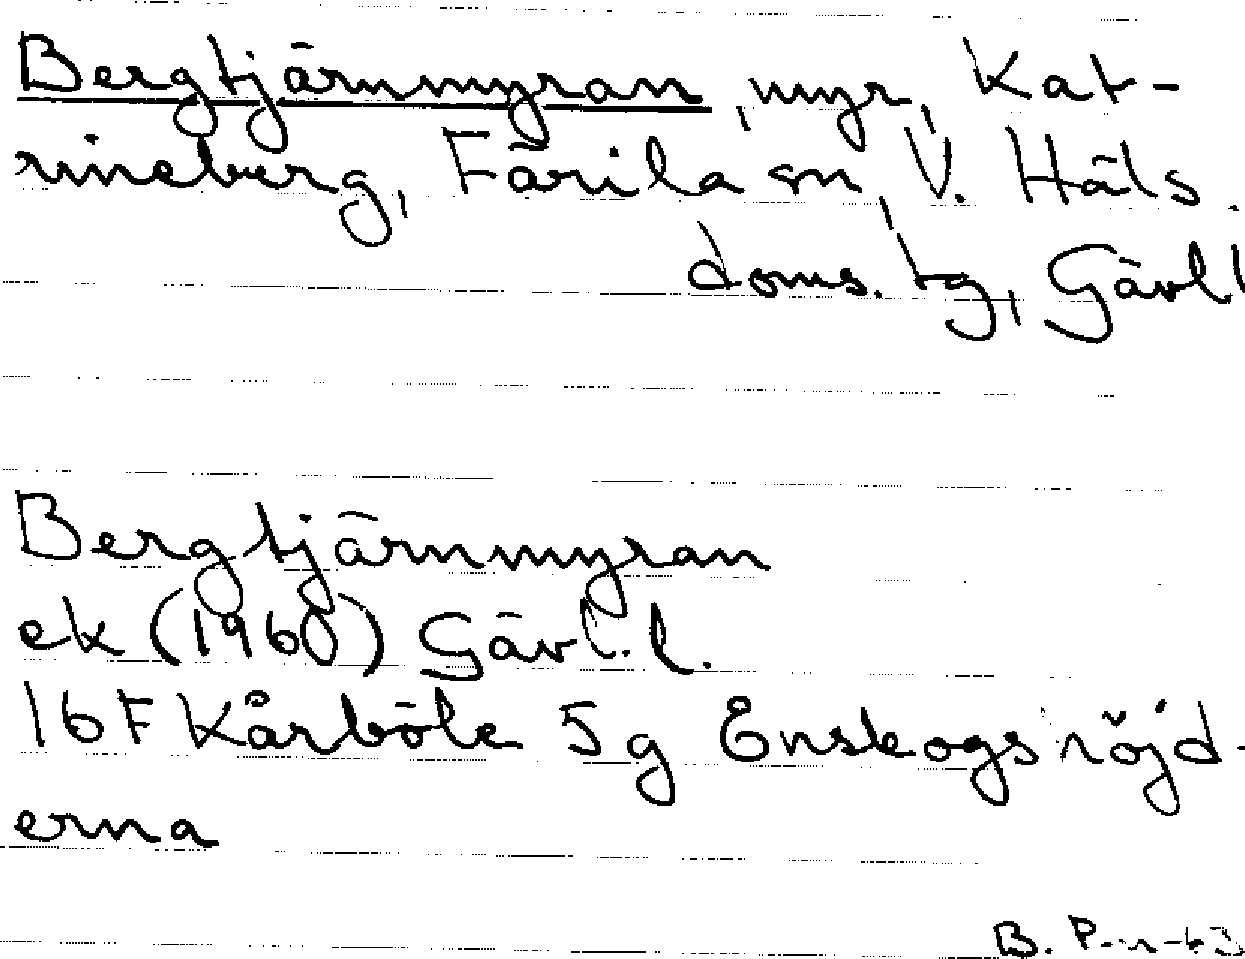 Bergtjärnmyran, myr, Kat-
rineberg, Färila sn, V. Häls.
doms. tg, Gävl.l
Bergtjärnmyran
ek (1960) Gävl.l.
16F Kårböle 5g Enskogsröjd-
erna
B. P-n-63